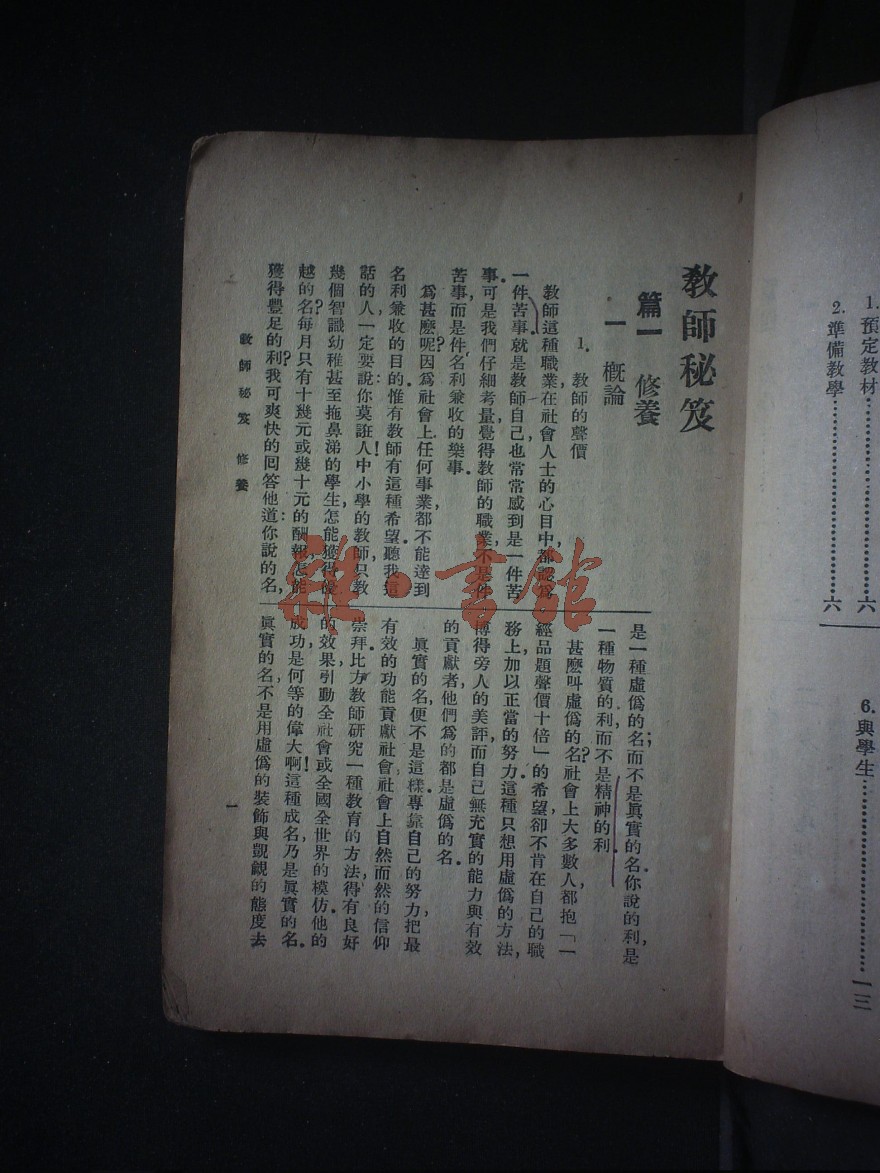 1. 預定教材……………………六
2. 準備教學……………………六
6. 與學生……………………一三
教師秘笈
篇一　修養
一　概論
1. 教師的聲價
教師這種職業，在社會人士的心目中，都認爲
一件苦事，就是教師自己，也常常感到是一件苦
事。可是我們仔細考量，覺得教師的職業，不是件
苦事，而是件名利兼收的樂事。
爲甚麽呢？因爲社會上任何事業，都不能達到
名利兼收的目的。惟有教師有這種希望。聽我這
話的人，一定要說你莫誑人！中小學的教師，只教
幾個智識幼稚甚至拖鼻涕的學生，怎能獲得優
越的名？每月只有十幾元或幾十元的酬報，怎能
獲得豐足的利？我可爽快的回答他道：你說的名，
是一種虛僞的名；而不是眞實的名。你說的利，是
一種物質的利，而不是精神的利。
甚麽叫虛僞的名？社會上大多數人，都抱「一
經品題聲價十倍」的希望，卻不肯在自己的職
務上加以正當的努力，這種只想用虛僞的方法，
博得旁人的美評，而自己無充實的能力與有效
的貢獻者，他們爲的都是虛僞的名。
眞實的名，便不是這樣。專靠自己的努力，把最
有效的功能，貢獻社會，社會上自然而然的信仰
崇拜。比方教師研究一種教育的方法，得有良好
的效果，引動全社會或全國全世界的模仿，他的
成功，是何等的偉大啊！這種成名，乃是眞實的名。
眞實的名，不是用虛僞的裝飾與覬覦的態度去
教師秘笈　修養
一
雜·書館